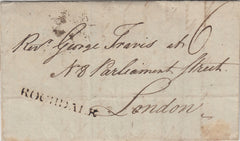 Revd. George Travis at 6
No 8 Parliament Street
ROCHDALE
London